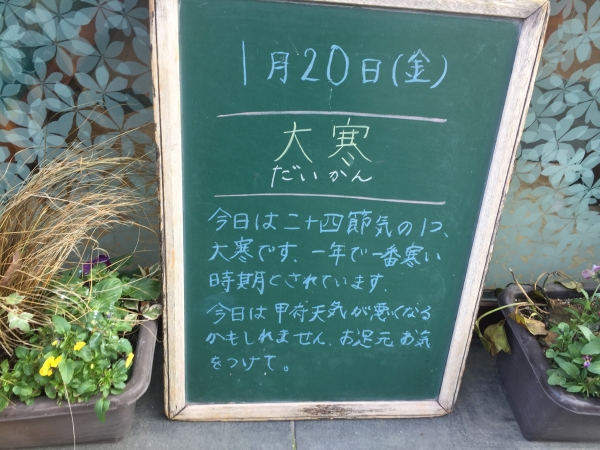 1月20日(金)
大寒
だいかん
今日は二十四節気の1つ、
大寒です。一年で一番寒い
時期とされています。
今日は甲府天気が悪くなる
かもしれません。お足元お気
をつけて。